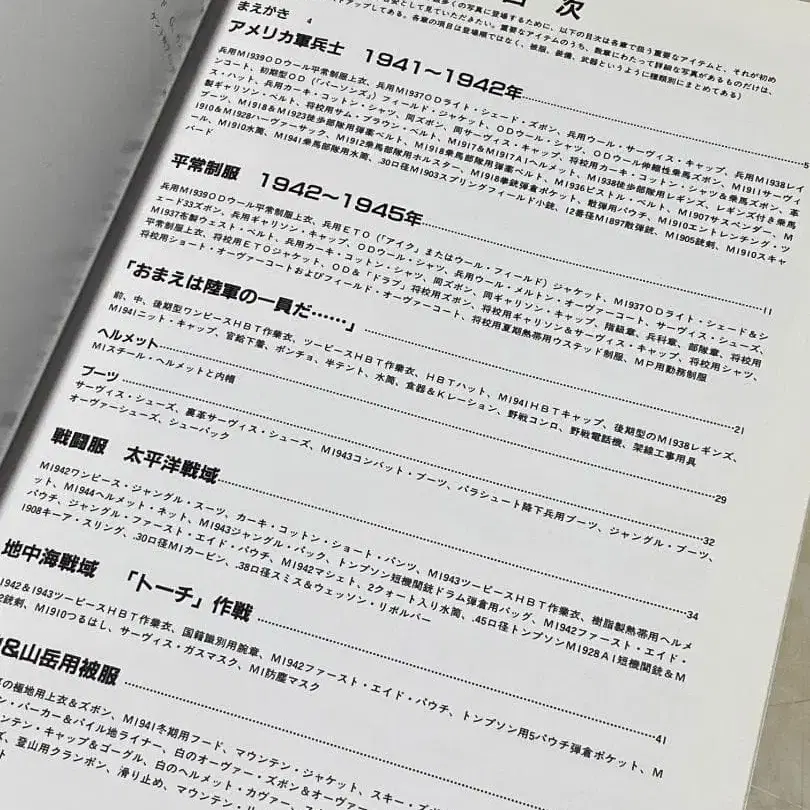 目次
多くの写真に登場するために、以下の目次は各章で扱う重要なアイテムと、それが初め
安として見ていただきたい。重要なアイテムのうち、数章にわたって詳細な写真があるものだけは、
ストアップしてある。各章の項目は登場順ではなく、被服、装備、武器というように種類別にまとめてある)
まえがき 4
アメリカ軍兵士 1941〜1942年 5
兵用M1939ODウール平常制服上衣、兵用M1937ODライト・シェード・ズボン、兵用ウール・サーヴィス・キャップ、兵用M1938レイ
ンコート、初期型OD(「パーソンズ」)フィールド・ジャケット、ODウール・シャツ、ODウール伸縮性乗馬ズボン、M1911サーヴィ
ス・ハット、兵用カーキ・コットン・シャツ、同ズボン、同サーヴィス・キャップ、将校用カーキ・コットン・シャツ&乗馬ズボン、革
製ギャリソン・ベルト、将校用サム・ブラウン・ベルト、M1917&M1917A1ヘルメット、M1938徒歩部隊用レギンズ、レギンズ付き乗馬
ブーツ、M1918&M1923徒歩部隊用弾薬ベルト、M1918乗馬部隊用弾薬ベルト、M1936ピストル・ベルト、M1907サスペンダー、M
1910&M1928ハヴァーサック、M1912乗馬部隊用ホルスター、M1918拳銃弾倉ポケット、散弾用パウチ、M1910エントレンチング・ツ
ール、M1910水筒、M1941乗馬部隊用水筒、.30口径M1903スプリングフィールド小銃、12番径M1897散弾銃、M1905銃剣、M1910スキャ
バード
平常制服 1942〜1945年 11
兵用M1939ODウール平常制服上衣、兵用ETO(「アイク」またはウール・フィールド)ジャケット、M1937ODライト・シェード&シ
ェード33ズボン、兵用ギャリソン・キャップ、ODウール・シャツ、兵用ウール・メルトン・オーヴァーコート、サーヴィス・シューズ、
M1937布製ウェスト・ベルト、兵用カーキ・コットン・シャツ、同ズボン、同ギャリソン・キャップ、階級章、兵科章、部隊章、将校用
平常制服上衣、将校用ETOジャケット、OD&「ドラブ」将校用ズボン、将校用ギャリソン&サーヴィス・キャップ、将校用シャツ、
将校用ショート・オーヴァーコートおよびフィールド・オーヴァーコート、将校用夏期熱帯用ウステッド制服、MP用勤務制服
「おまえは陸軍の一員だ……」 21
前、中、後期型ワンピースHBT作業衣、ツーピースHBT作業衣、HBTハット、M1941HBTキャップ、後期型のM1938レギンズ、
M1941ニット・キャップ、官給下着、ポンチョ、半テント、水筒、食器&Kレーション、野戦コンロ、野戦電話機、架線工事用具
ヘルメット 29
M1スチール・ヘルメットと内帽
ブーツ 32
サーヴィス・シューズ、裏革サーヴィス・シューズ、M1943コンバット・ブーツ、パラシュート降下兵用ブーツ、ジャングル・ブーツ、
オーヴァーシューズ、シューパック
戦闘服 太平洋戦域 34
M1942ワンピース・ジャングル・スーツ、カーキ・コットン・ショート・パンツ、M1943ツーピースHBT作業衣、樹脂製熱帯用ヘルメ
ット、M1944ヘルメット・ネット、M1943ジャングル・パック、トンプソン短機関銃ドラム弾倉用バッグ、M1942ファースト・エイド・
パウチ、ジャングル・ファースト・エイド・パウチ、M1942マシェト、2クォート入り水筒、.45口径トンプソンM1928A1短機関銃&M
1908キーア・スリング、.30口径M1カービン、.38口径スミス&ウェッソン・リボルバー
地中海戦域 「トーチ」作戦 41
1942&1943ツーピースHBT作業衣、国籍識別用腕章、M1942ファースト・エイド・パウチ、トンプソン用5パウチ弾倉ポケット、M
2銃剣、M1910つるはし、サーヴィス・ガスマスク、M1防塵マスク
&山岳用被服
の極地用上衣&ズボン、M1941冬期用フード、マウンテン・ジャケット、スキー・ズボ
ン・パーカー&パイル地ライナー、白のオーヴァー・ズボン&オーヴァー
ンテン・キャップ&ゴーグル、白のヘルメット・カヴァー、ス
ズ、登山用クランポン、滑り止め、マウンテン・リ
ット